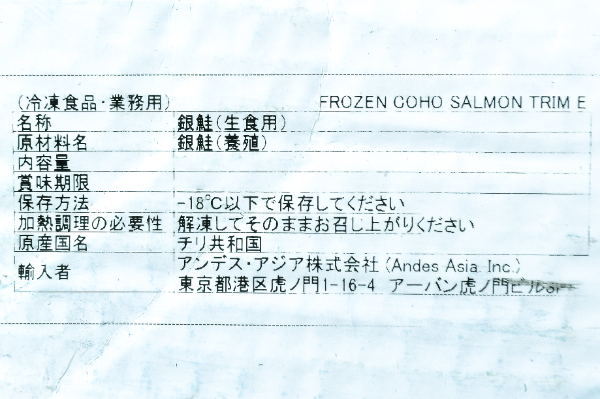 (冷凍食品・業務用) FROZEN COHO SALMON TRIM E
名称 銀鮭(生食用)
原材料名 銀鮭(養殖)
内容量
賞味期限
保存方法 -18℃以下で保存してください
加熱調理の必要性 解凍してそのままお召し上がりください
原産国名 チリ共和国
輸入者 アンデス・アジア株式会社 (Andes Asia. Inc.)
東京都港区虎ノ門1-16-4 アーバン虎ノ門ビル